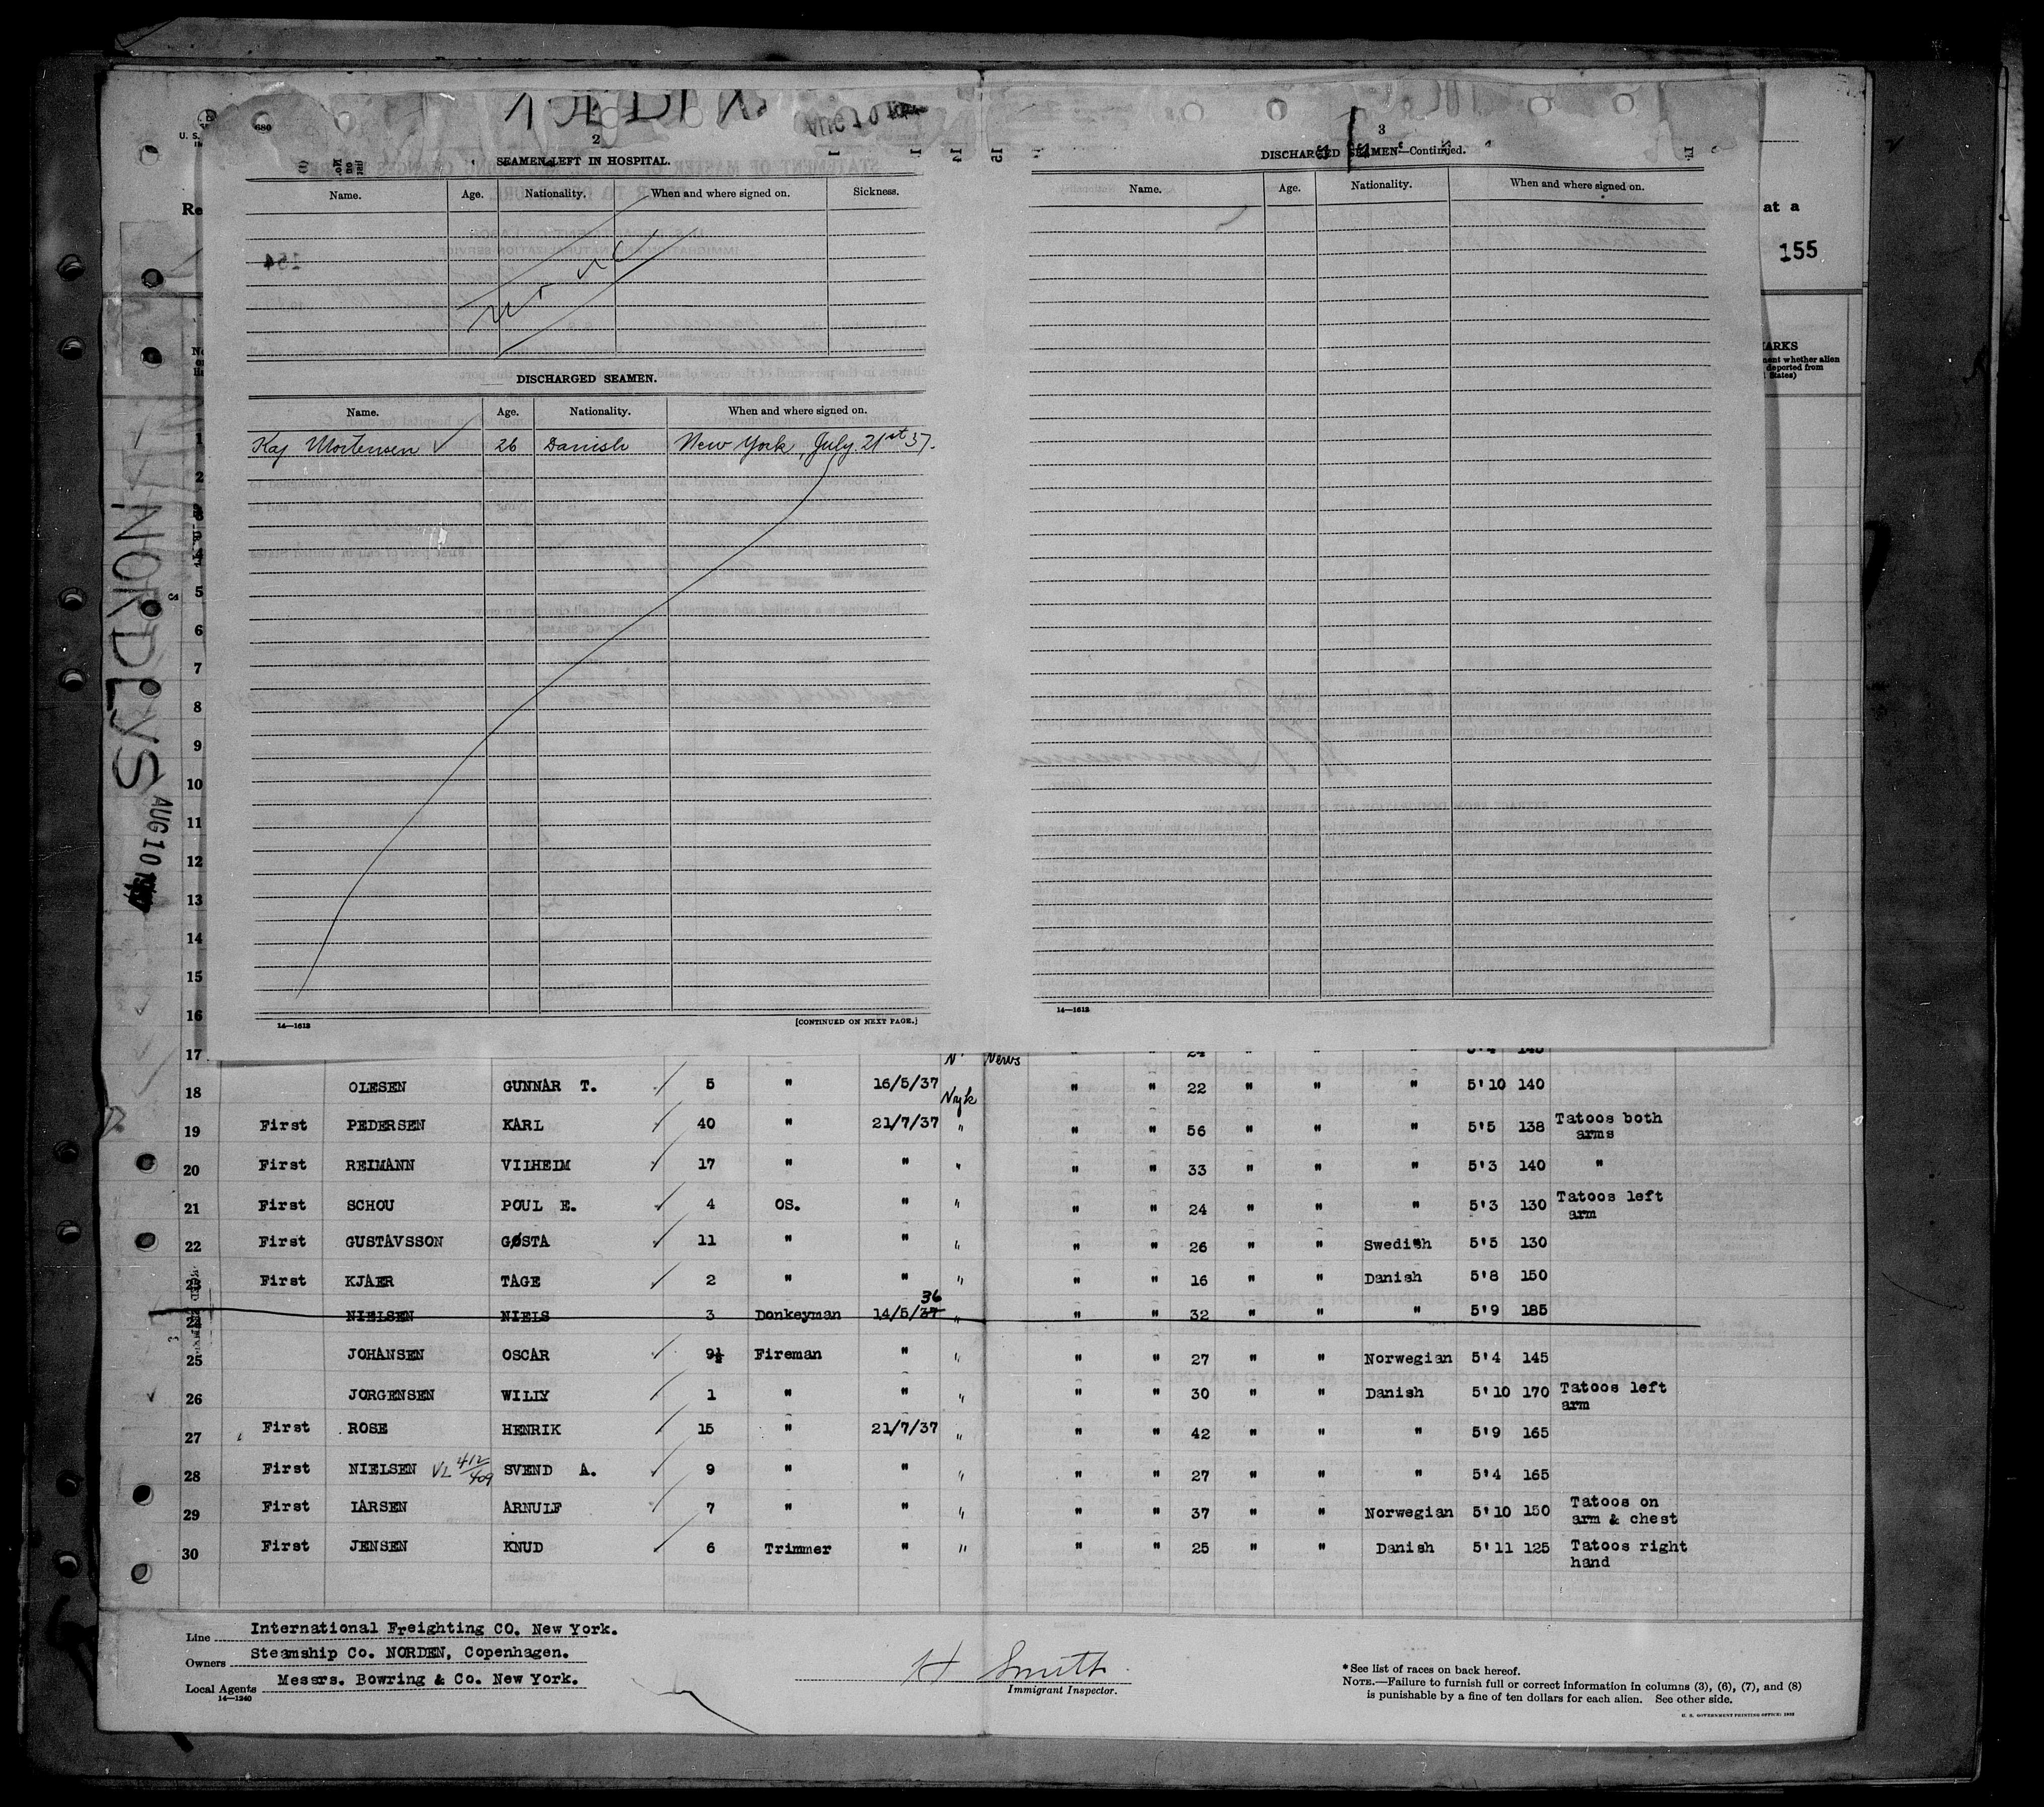 NORDLYS
AUG 10 1937
680
2
SEAMEN LEFT IN HOSPITAL.
Name. Age. Nationality. When and where signed on. Sickness.
none
DISCHARGED SEAMEN.
Name. Age. Nationality. When and where signed on.
Kaj Mortensen √ 26 Danish New York, July. 21st 37.
14—1612 [CONTINUED ON NEXT PAGE.]
3
DISCHARGED SEAMEN—Continued.
Name. Age. Nationality. When and where signed on.
14—1612
at a
155
ARKS
ment whether alien
deported from
States)
1
2
3
4
5
6
7
8
9
10
11
12
13
14
15
16
17 N' News " " 24 " " " 5'4 145
18 OLESEN GUNNAR T. 5 " 16/5/37 " " 22 " " " 5'10 140
Nyk
19 First PEDERSEN KARL 40 " 21/7/37 " " " 56 " " " 5'5 138 Tatoos both
arms
20 First REIMANN VILHEIM 17 " " " " " 33 " " " 5'3 140 "
21 First SCHOU POUL E. 4 OS. " " " " 24 " " " 5'3 130 Tatoos left
arm
22 First GUSTAVSSON GØSTA 11 " " " " " 26 " " Swedish 5'5 130
23 First KJAER TAGE 2 " " " " " 16 " " Danish 5'8 150
36
NIELSEN NIELS 3 Donkeyman 14/5/37 " " " 32 " " " 5'9 185
25 JOHANSEN OSCAR 9½ Fireman " " " " 27 " " Norwegian 5'4 145
26 JORGENSEN WILLY 1 " " " " " 30 " " Danish 5'10 170 Tatoos left
arm
27 First ROSE HENRIK 15 " 21/7/37 " " " 42 " " " 5'9 165
28 First NIELSEN VL 412/409 SVEND A. 9 " " " " " 27 " " " 5'4 165
29 First LARSEN ARNULF 7 " " " " " 37 " " Norwegian 5'10 150 Tatoos on
arm & chest
30 First JENSEN KNUD 6 Trimmer " " " " 25 " " Danish 5'11 125 Tatoos right
hand
Line International Freighting CO. New York.
Owners Steamship Co. NORDEN, Copenhagen.
Local Agents Messrs. Bowring & Co. New York.
14—1240
H Smith
Immigrant Inspector.
* See list of races on back hereof.
NOTE.—Failure to furnish full or correct information in columns (3), (6), (7), and (8)
is punishable by a fine of ten dollars for each alien. See other side.
U. S. GOVERNMENT PRINTING OFFICE: 1932